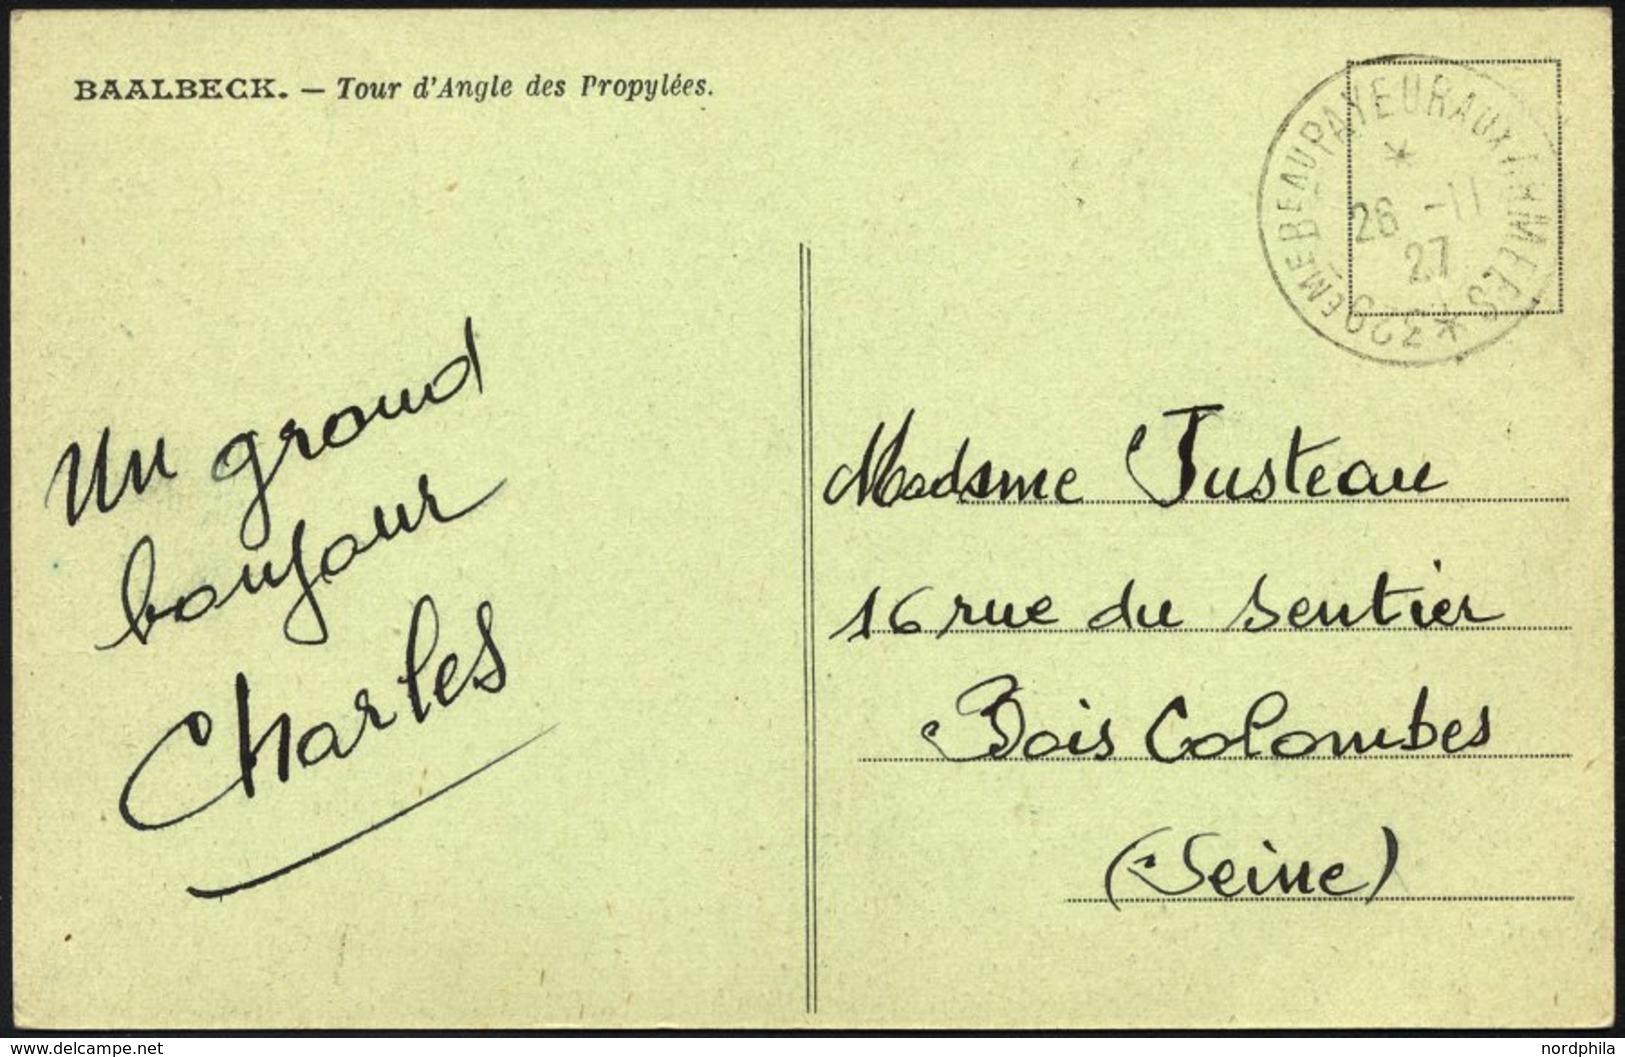 BAALBECK. — Tour d'Angle des Propylées.
PAYEUR AUX ARMÉES
26 -11
27
Un grand
bonjour
Charles
Madame Justeau
16 rue du Sentier
Bois Colombes
(Seine)
www.delcampe.net
nordphila